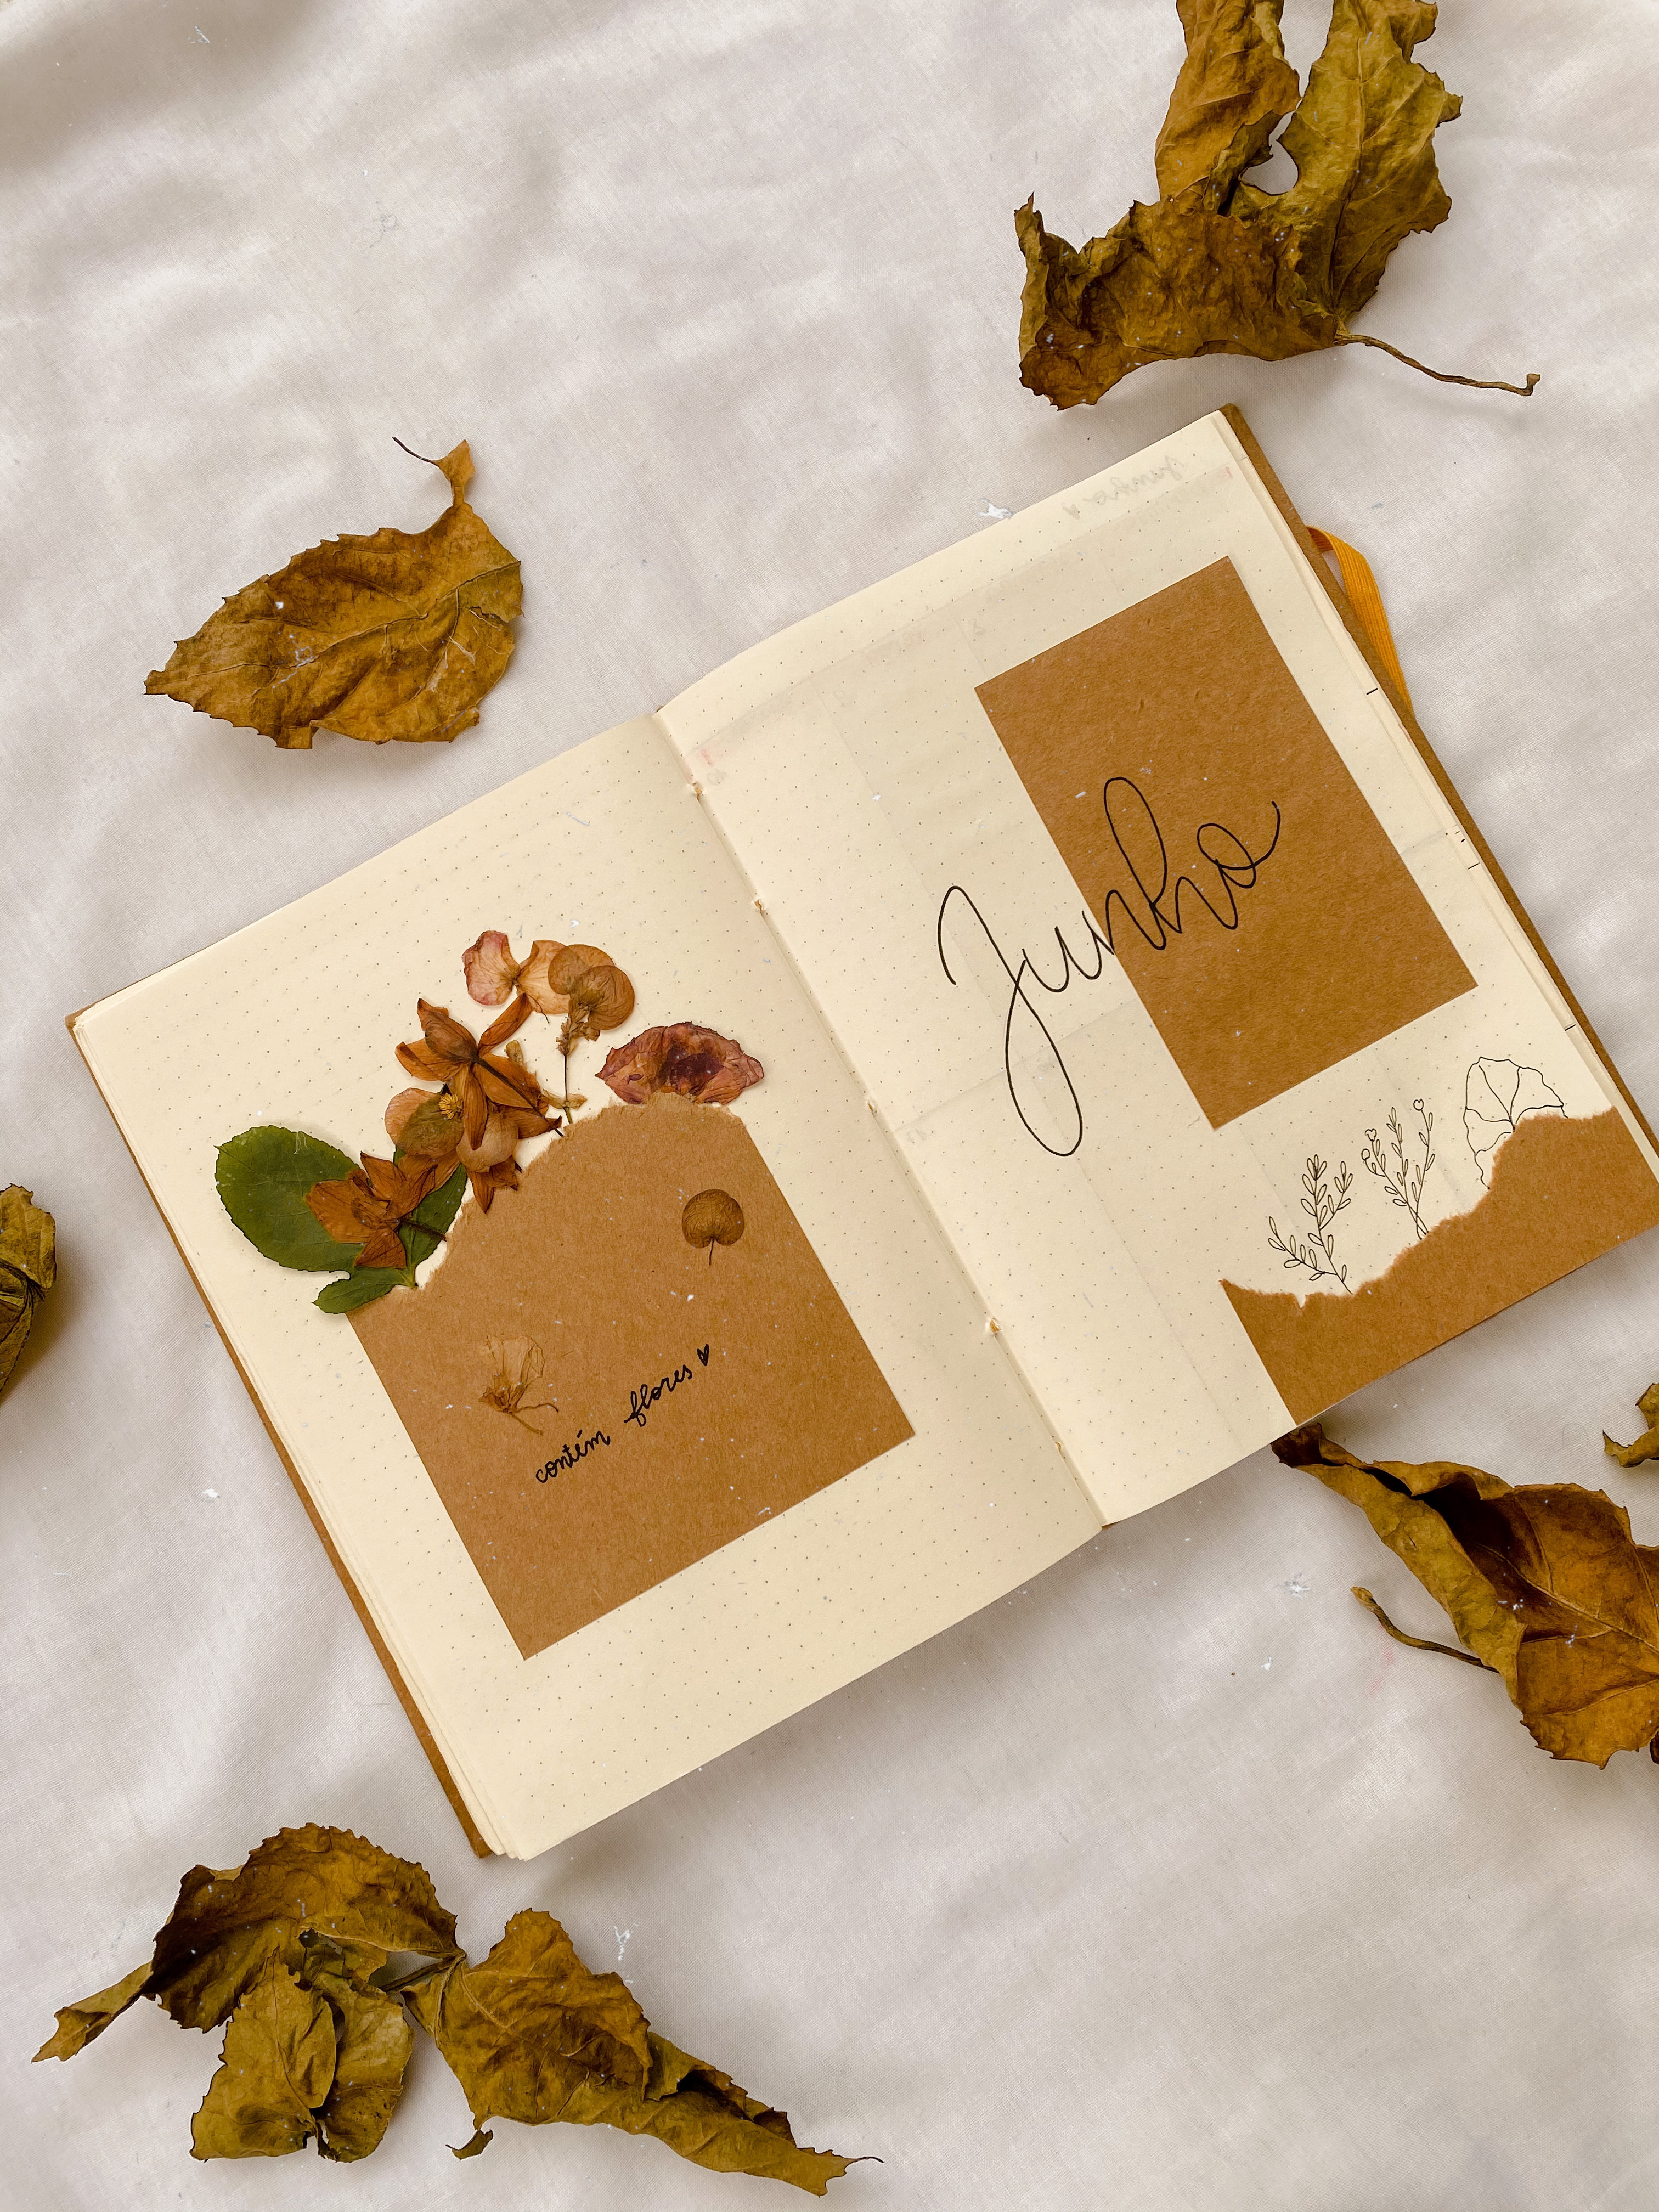 contém flores
Junho